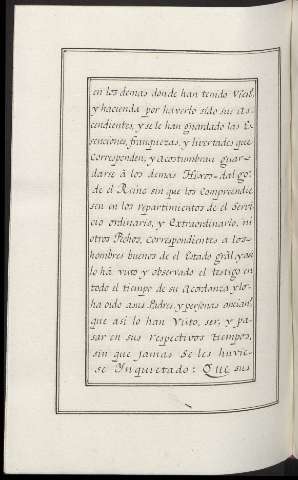 en los demas donde han tenido Vecil,
y hacienda por haverlo sido sus As-
cendientes, y se le han guardado las Es-
senciones, franquezas, y livertades que
Corresponden, y Acostumbran guar-
darse à los demas Hijos-dalgo,
de el Reino sin que los Comprendie
sen en los repartimientos de el Servi
cio ordinario, y Extraordinario, ni
otros Pechos, Correspondientes a los-
hombres buenos de el Estado grâl y an
lo hà visto y observado el testigo en
todo el tiempo de su Acordanza y lo-
ha oido a sus Padres, y personas ancian.
que asi lo han Visto, ser, y pa-
sar en sus respectivos tiempos,
sin que jamas se les huvie-
se Ynquietado: Que sus